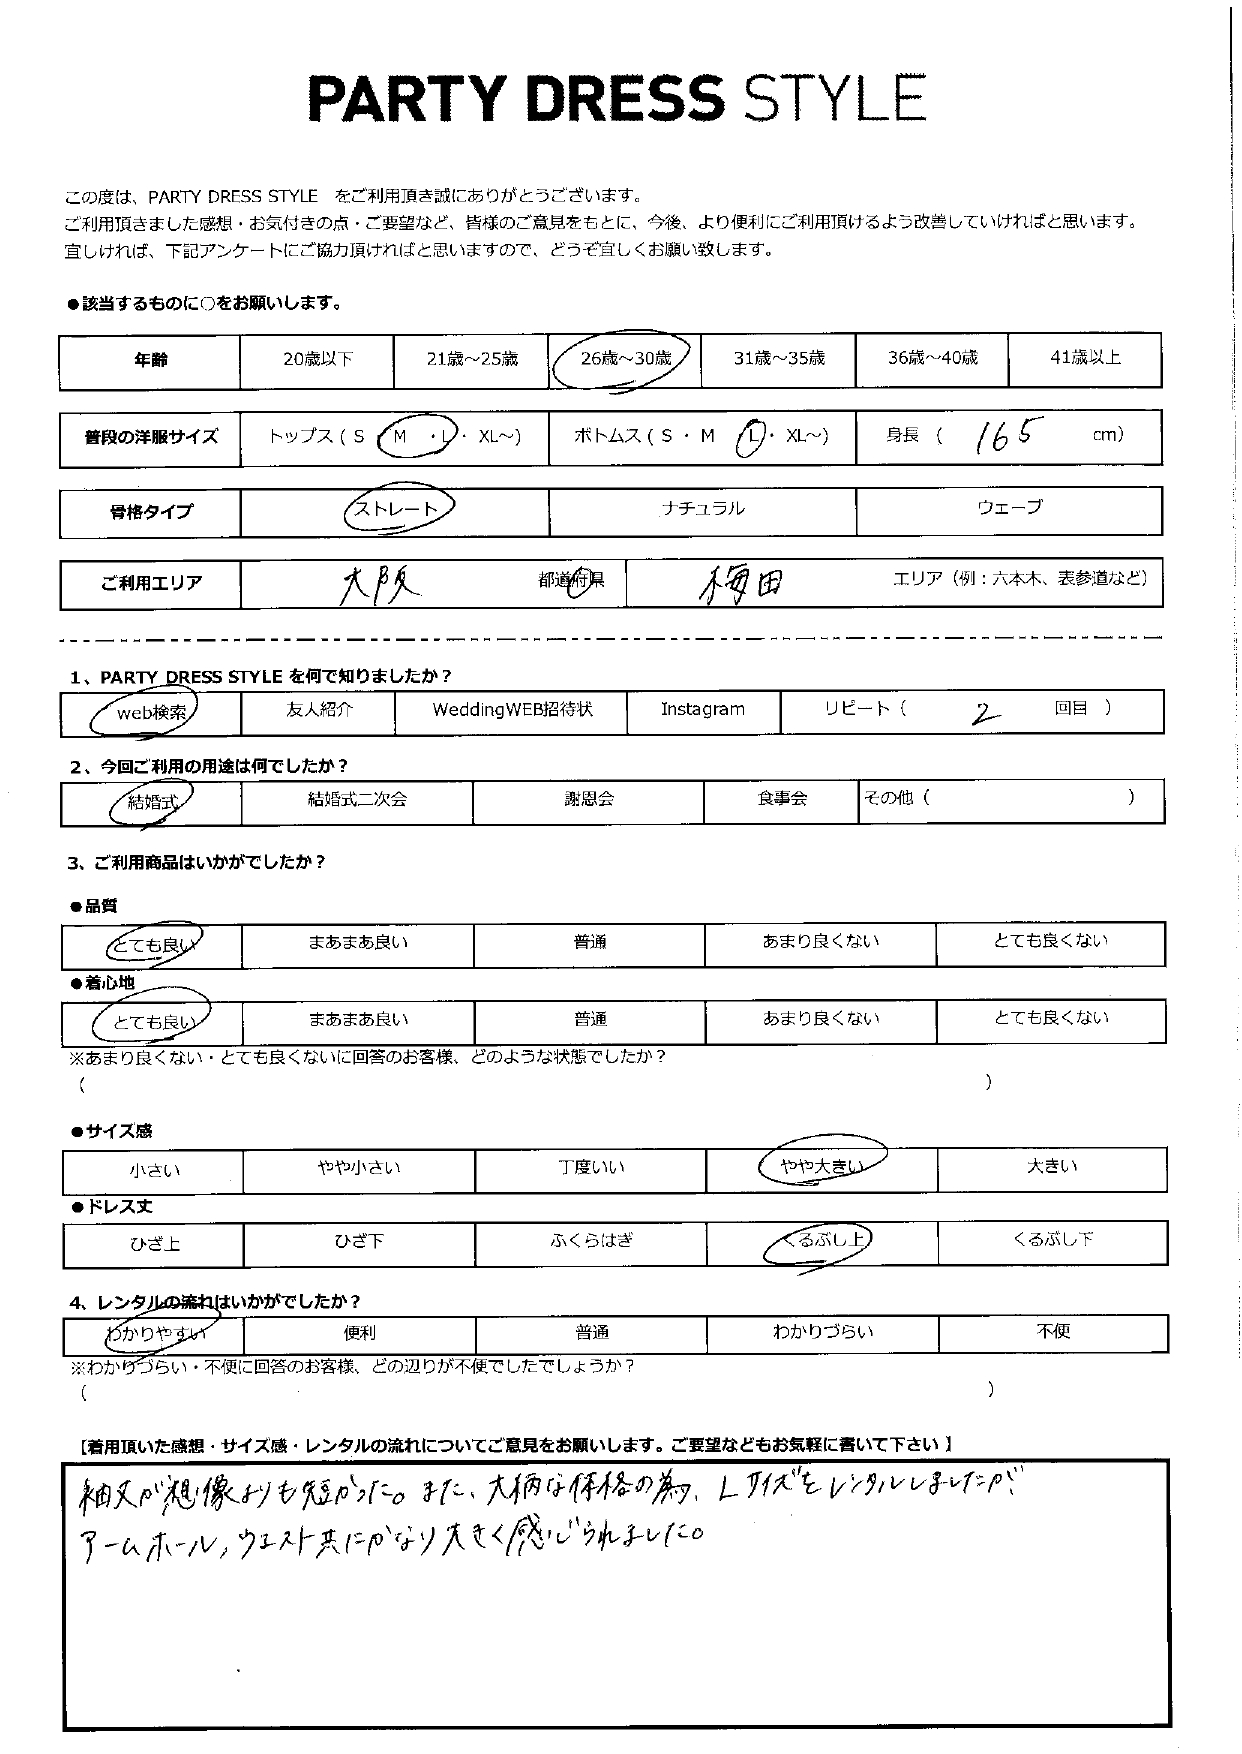 PARTY DRESS STYLE
この度は、PARTY DRESS STYLE をご利用頂き誠にありがとうございます。
ご利用頂きました感想・お気付きの点・ご要望など、皆様のご意見をもとに、今後、より便利にご利用頂けるよう改善していければと思います。
宜しければ、下記アンケートにご協力頂ければと思いますので、どうぞ宜しくお願い致します。
●該当するものに○をお願いします。
年齢 20歳以下 21歳～25歳 26歳～30歳 31歳～35歳 36歳～40歳 41歳以上
普段の洋服サイズ トップス ( S M ・L・ XL～) ボトムス ( S ・ M L・ XL～) 身長 ( 165 cm)
骨格タイプ ストレート ナチュラル ウェーブ
ご利用エリア 大阪 都道府県 梅田 エリア (例：六本木、表参道など)
1、PARTY DRESS STYLE を何で知りましたか？
web検索 友人紹介 WeddingWEB招待状 Instagram リピート ( 2 回目 )
2、今回ご利用の用途は何でしたか？
結婚式 結婚式二次会 謝恩会 食事会 その他 ( )
3、ご利用商品はいかがでしたか？
●品質
とても良い まあまあ良い 普通 あまり良くない とても良くない
●着心地
とても良い まあまあ良い 普通 あまり良くない とても良くない
※あまり良くない・とても良くないに回答のお客様、どのような状態でしたか？
( )
●サイズ感
小さい やや小さい 丁度いい やや大きい 大きい
●ドレス丈
ひざ上 ひざ下 ふくらはぎ くるぶし上 くるぶし下
4、レンタルの流れはいかがでしたか？
わかりやすい 便利 普通 わかりづらい 不便
※わかりづらい・不便に回答のお客様、どの辺りが不便でしたでしょうか？
( )
【着用頂いた感想・サイズ感・レンタルの流れについてご意見をお願いします。ご要望などもお気軽に書いて下さい 】
袖丈が想像よりも短かった。また、大柄な体格の為、Lサイズをレンタルしましたが、
アームホール，ウエスト共にかなり大きく感じられました。